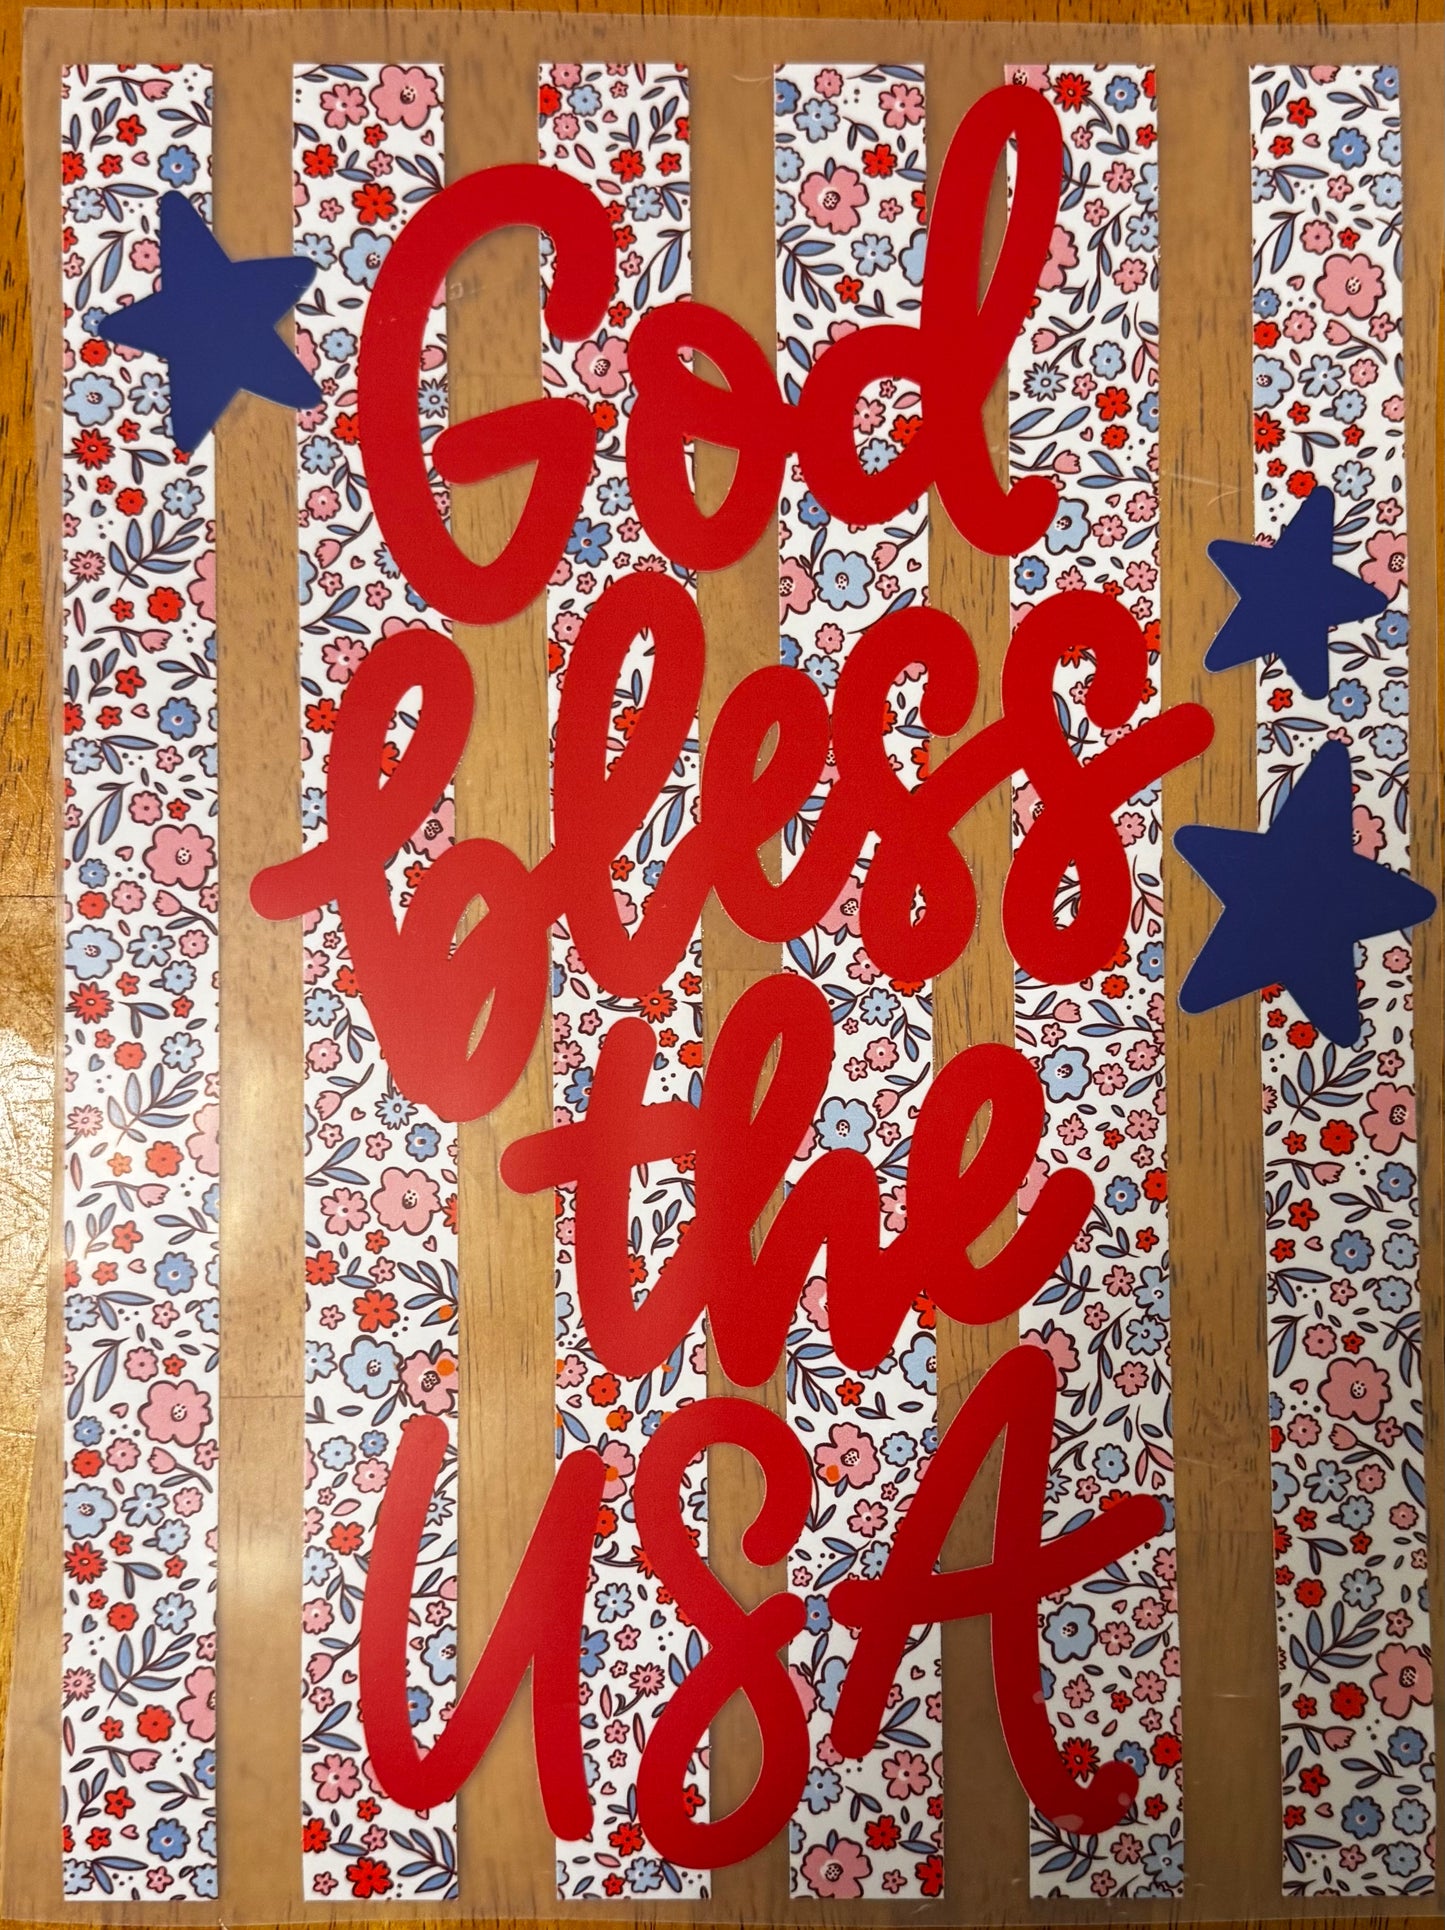 God
bless
the
USA